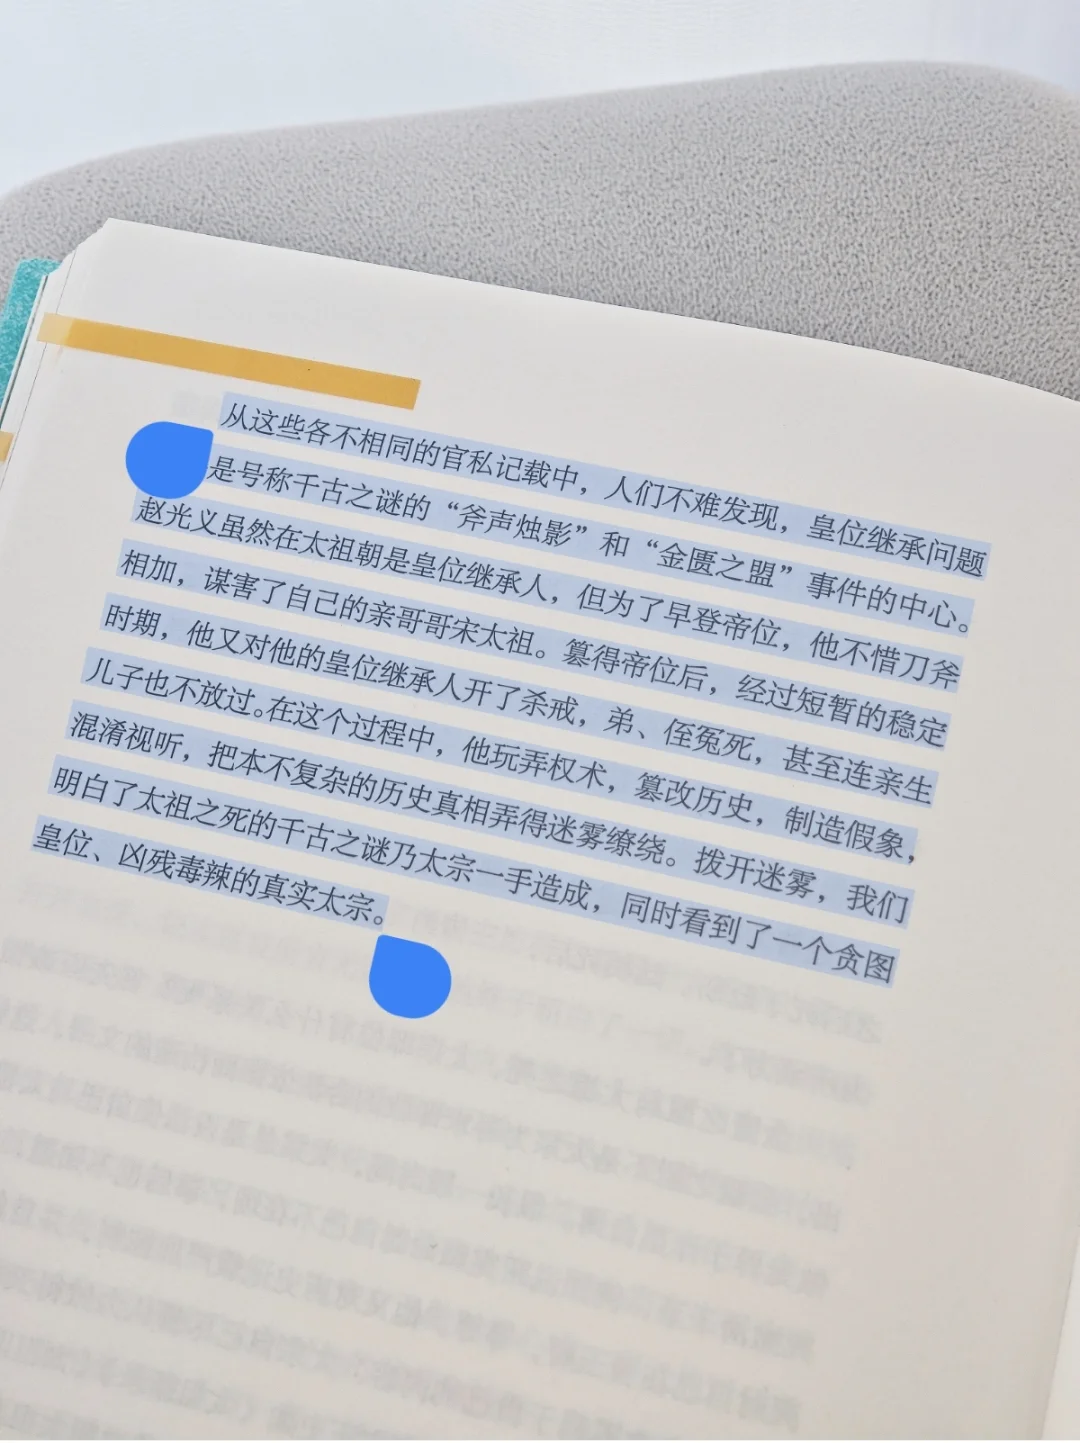 从这些各不相同的官私记载中，人们不难发现，皇位继承问题
是号称千古之谜的“斧声烛影”和“金匮之盟”事件的中心。
赵光义虽然在太祖朝是皇位继承人，但为了早登帝位，他不惜刀斧
相加，谋害了自己的亲哥哥宋太祖。篡得帝位后，经过短暂的稳定
时期，他又对他的皇位继承人开了杀戒，弟、侄冤死，甚至连亲生
儿子也不放过。在这个过程中，他玩弄权术，篡改历史，制造假象，
混淆视听，把本不复杂的历史真相弄得迷雾缭绕。拨开迷雾，我们
明白了太祖之死的千古之谜乃太宗一手造成，同时看到了一个贪图
皇位、凶残毒辣的真实太宗。